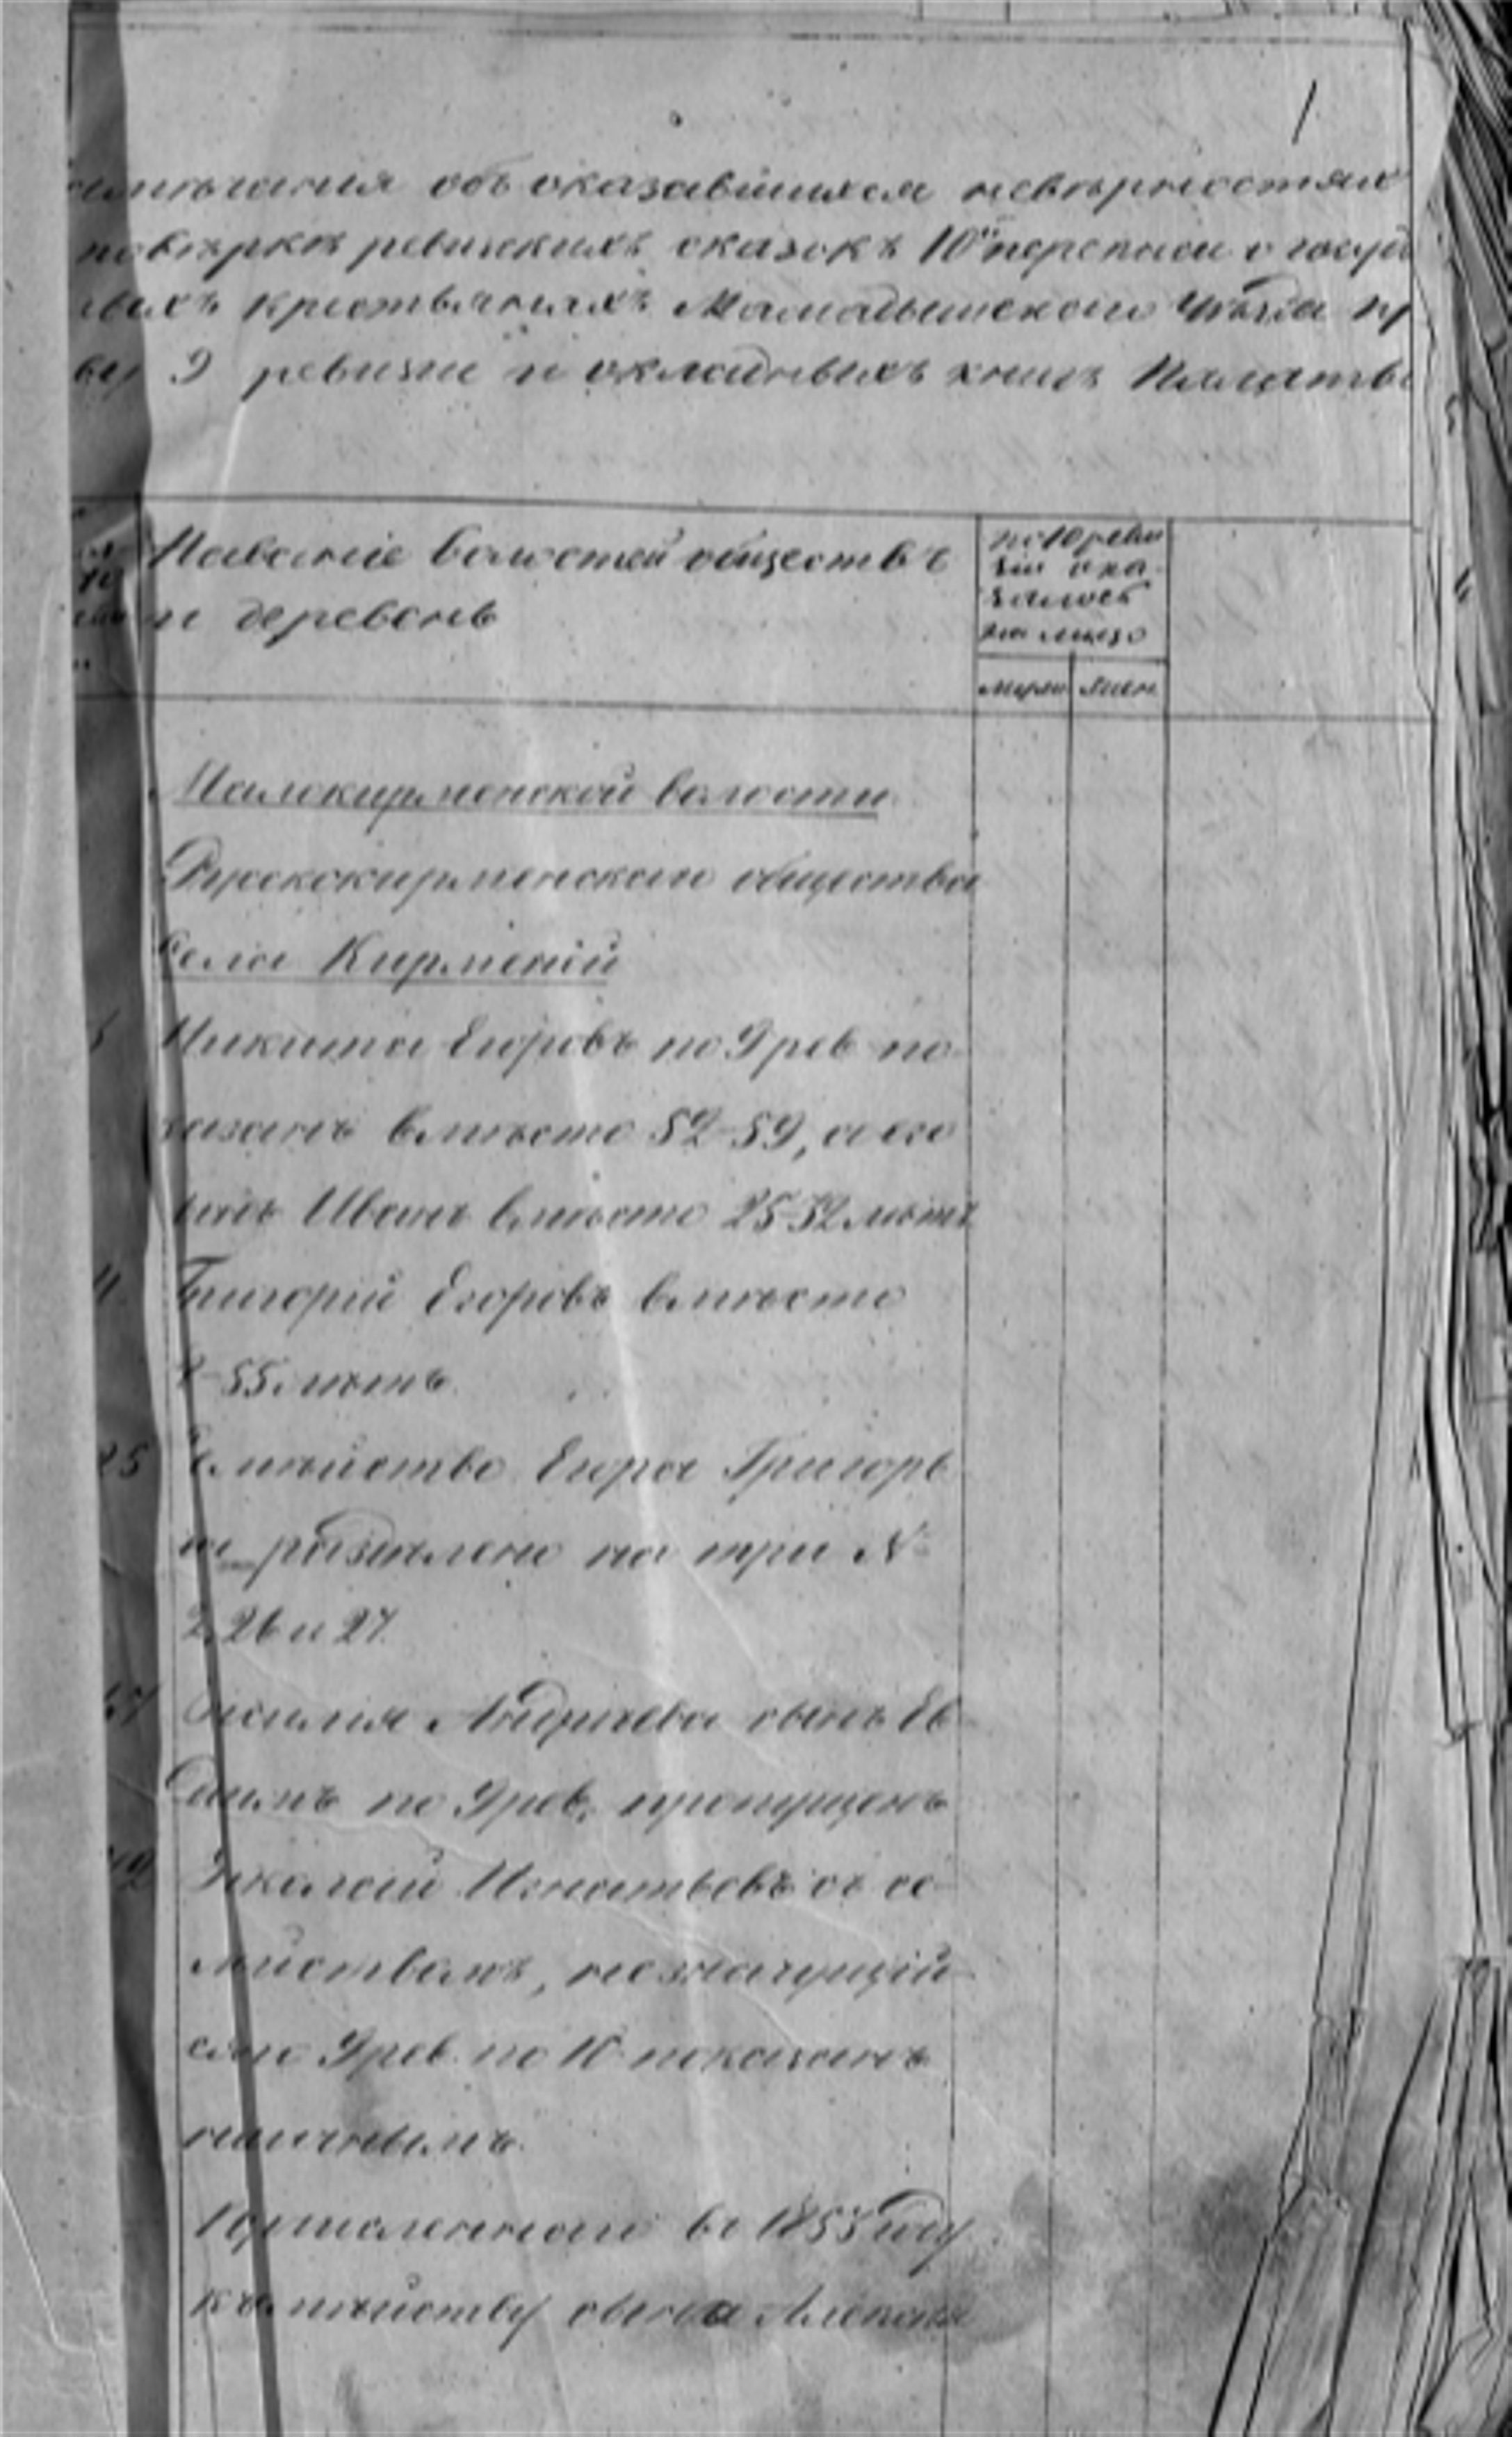 1
объ оказавшихся невѣрностяхъ
повѣркѣ ревизскихъ сказокъ 10й переписи о
крестьянахъ Мамадышского Уѣзда
9 ревизіи и окладныхъ книгъ Палаты
Названіе волостей обществъ
и деревень
по 10 реви
зіи ока
залось
на лицо
мужс женс
Малокирменской волости
Русскокирменскаго общества
Села Кирменей
5 Никита Егоровъ по 9 рев по
казанъ вмѣсто 52-59, а его
сынъ Иванъ вмѣсто 25-32 лѣтъ
11 Григорій Егоровъ вмѣсто
55 лѣтъ
25 Семѣйство Егора Григорь
раздѣлено на три №
26 и 27.
Андреева сынъ Ев
по 9 рев. пропущенъ
Николай Игнатьевъ съ се
мѣйствомъ, незначущій
ся по 9 рев. по 10 показанъ
наличнымъ.
Причисленнаго въ 1855 году
къ семѣйству сына Алексѣя